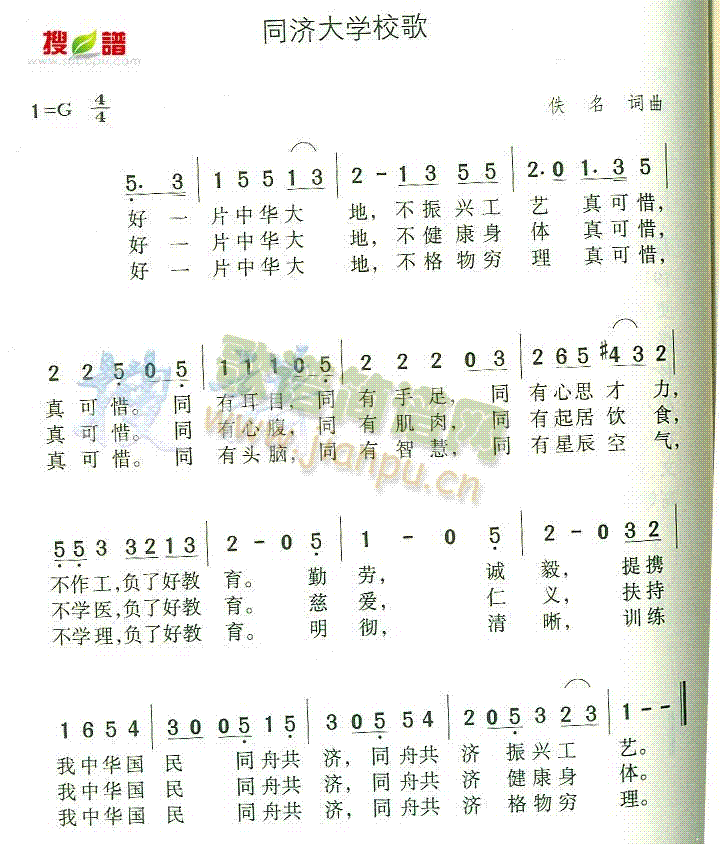 同济大学校歌
搜譜
www.sooopu.com
1=G 4/4
佚 名 词曲
5. 3 | 1 5 5 1 3 | 2 - 1 3 5 5 | 2. 0 1. 3 5 |
好一片中华大地，不振兴工艺 真可惜，
好一片中华大地，不健康身体 真可惜，
好一片中华大地，不格物穷理 真可惜，
2 2 5 0 5 | 1 1 1 0 5 | 2 2 2 0 3 | 2 6 5 #4 3 2 |
真可惜。同有耳目，同有手足，同有心思才力，
真可惜。同有心腹，同有肌肉，同有起居饮食，
真可惜。同有头脑，同有智慧，同有星辰空气，
歌谱简谱网
www.jianpu.cn
5 5 3 3 2 1 3 | 2 - 0 5 | 1 - 0 5 | 2 - 0 3 2 |
不作工，负了好教育。勤劳，诚毅，提携
不学医，负了好教育。慈爱，仁义，扶持
不学理，负了好教育。明彻，清晰，训练
1 6 5 4 | 3 0 0 5 1 5 | 3 0 5 5 4 | 2 0 5 3 2 3 | 1 - - ‖
我中华国民 同舟共济，同舟共济 振兴工艺。
我中华国民 同舟共济，同舟共济 健康身体。
我中华国民 同舟共济，同舟共济 格物穷理。